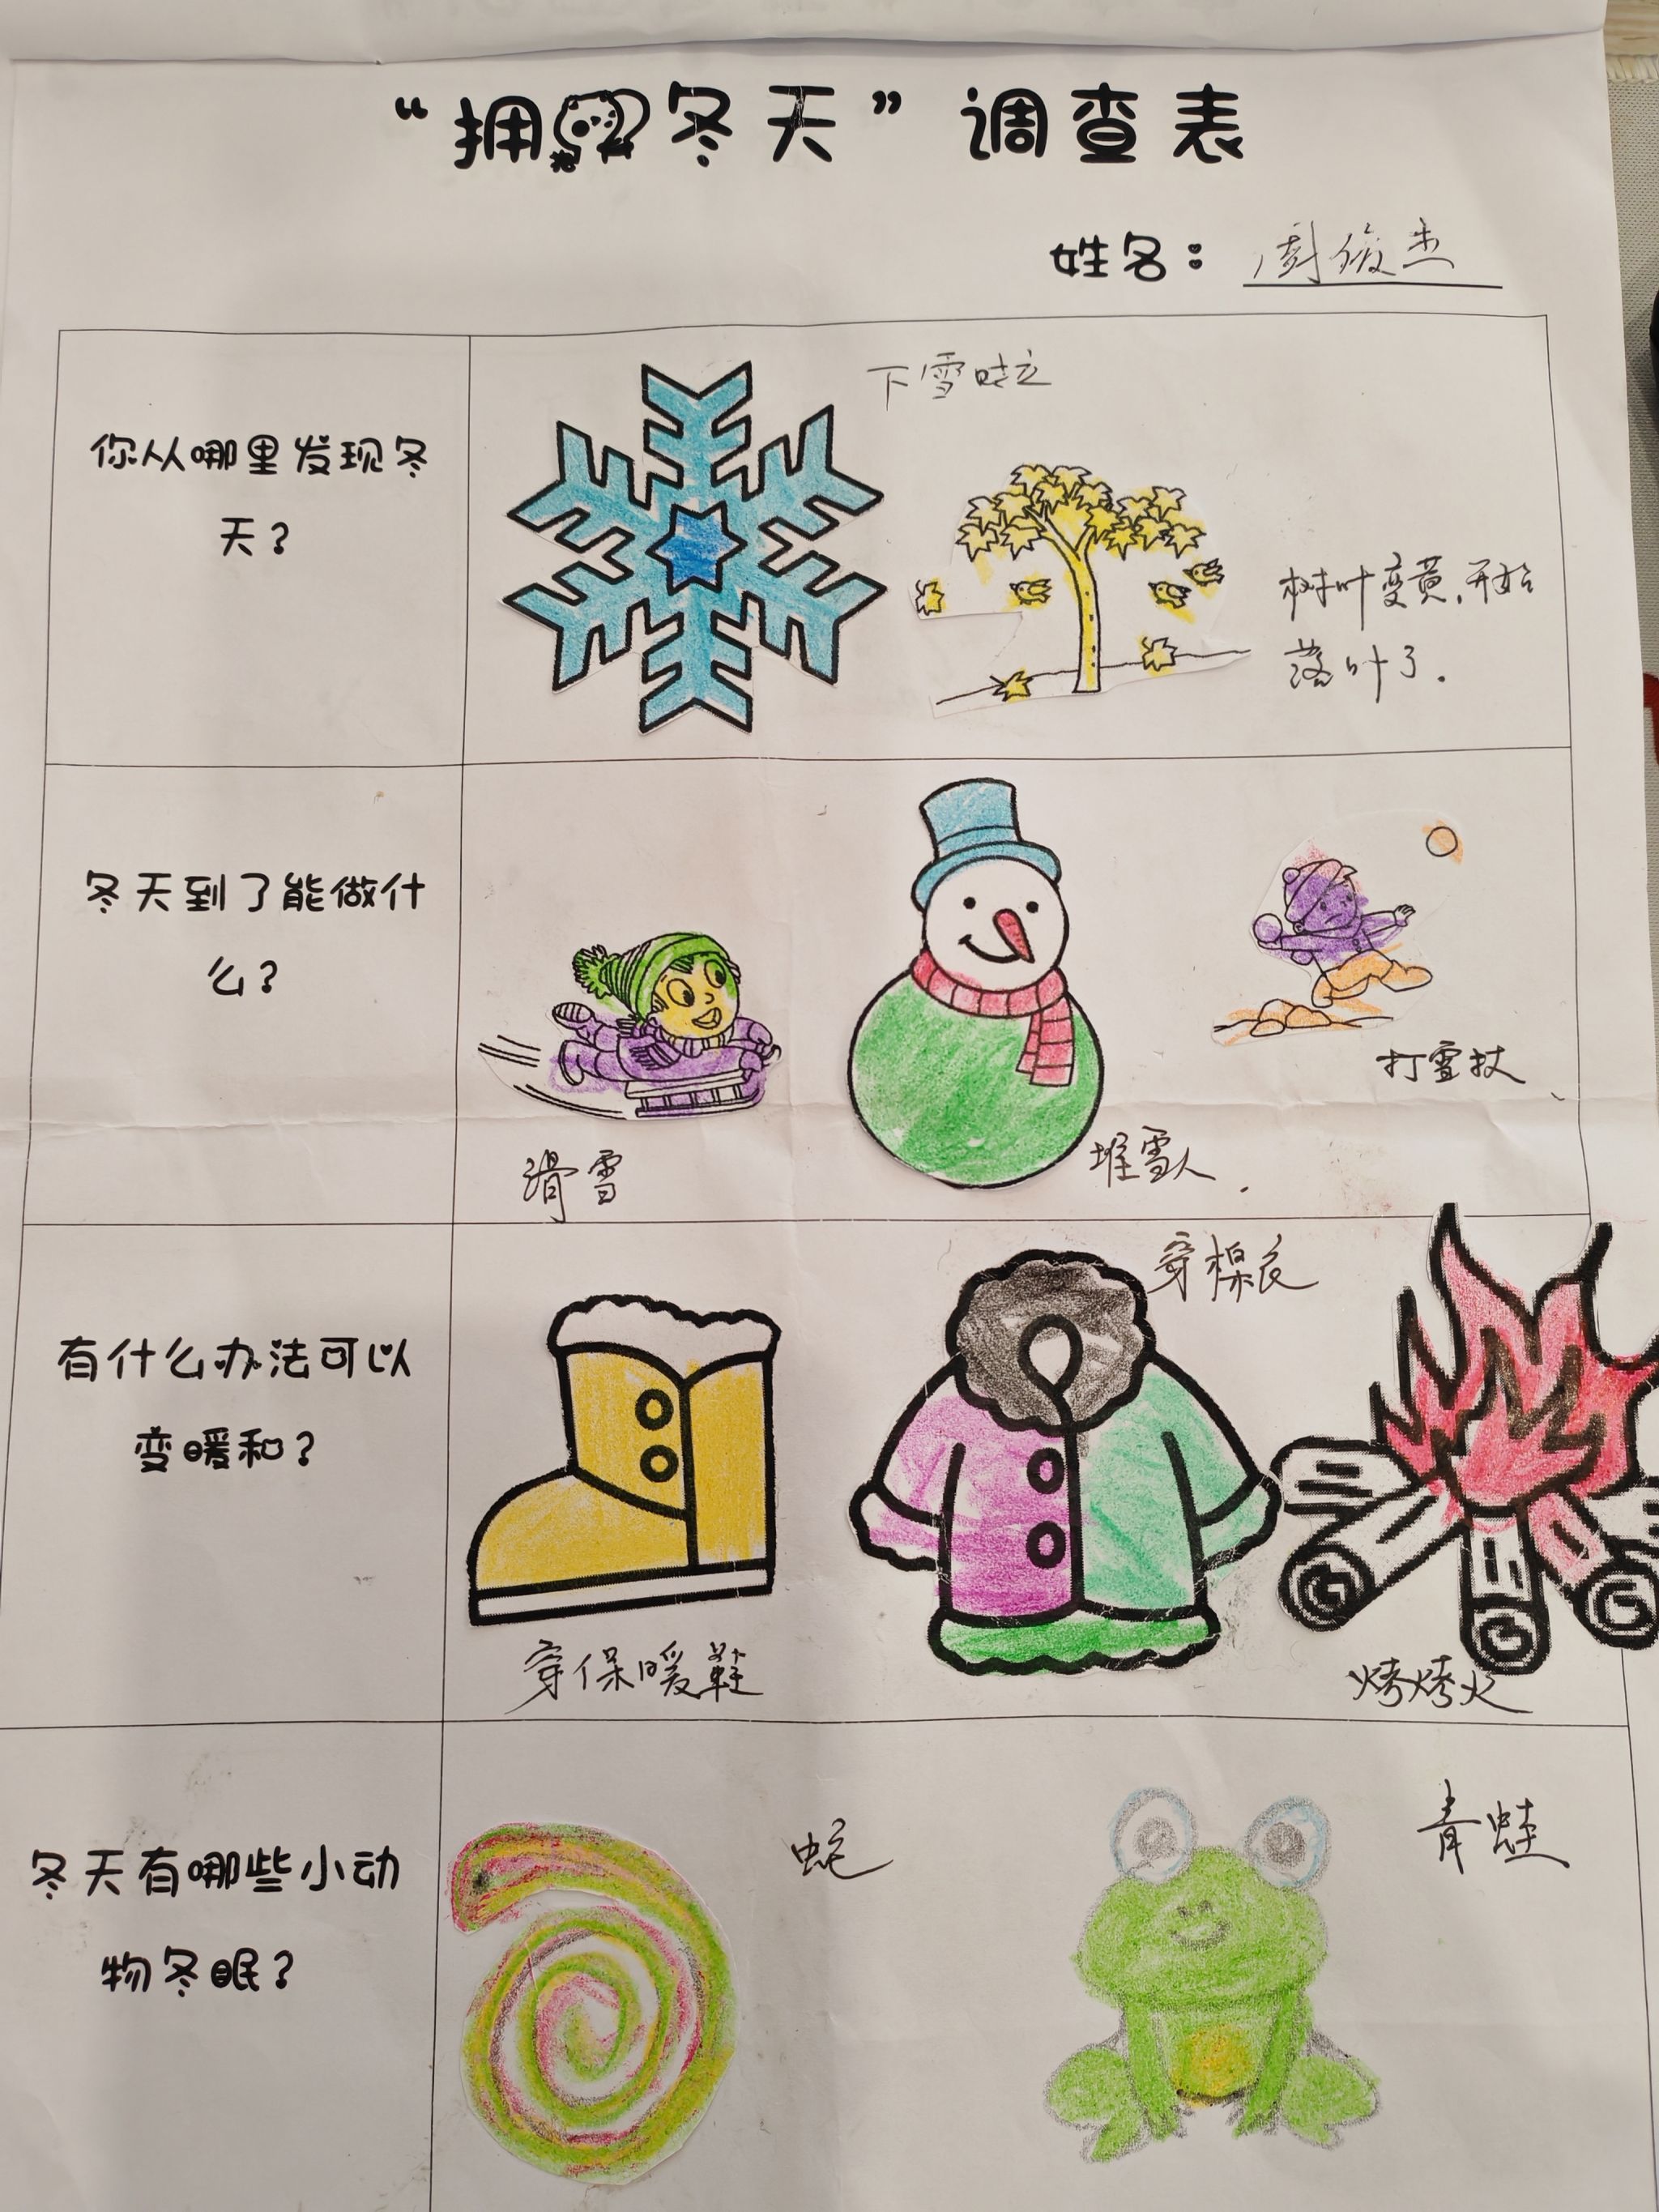 “拥 冬天”调查表
姓名：周俊杰
你从哪里发现冬
天？
下雪啦
树叶变黄，开始
落叶了.
冬天到了能做什
么？
滑雪
堆雪人.
打雪仗
有什么办法可以
变暖和？
穿保暖鞋
穿棉衣
烤烤火
冬天有哪些小动
物冬眠？
蛇
青蛙